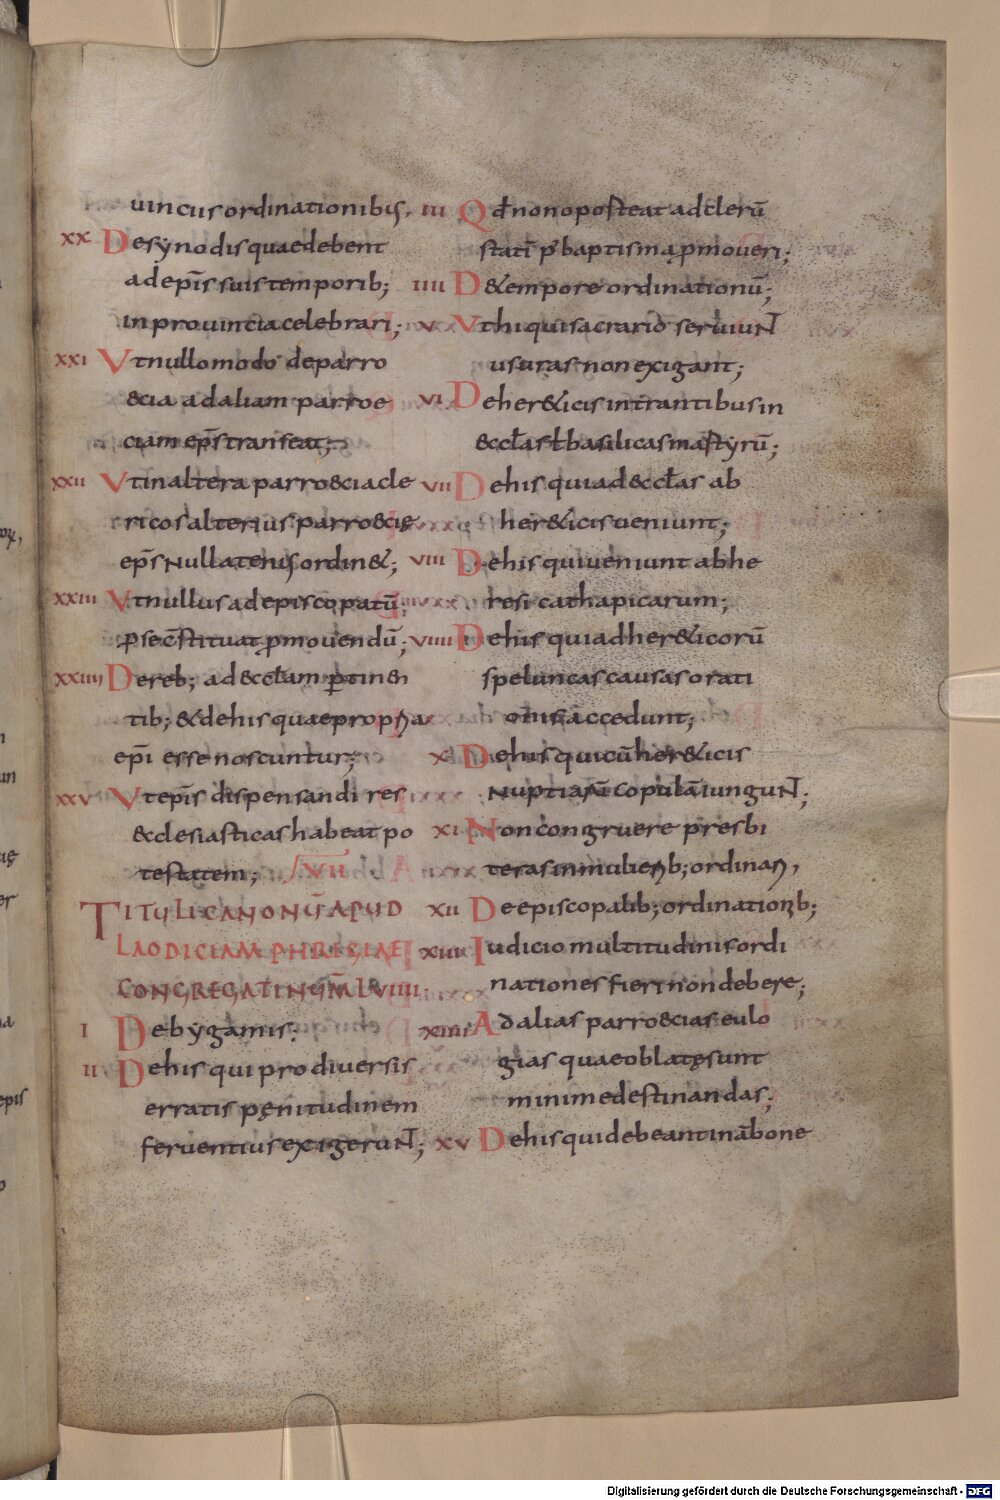 uincus ordinationibus.
XX De synodis quae debent
ad ep̄is suis temporib;
in prouincia celebrari;
XXI Ut nullo modo de parro
&cia ad aliam parroe
ciam ep̄s transeat;
XXII Ut in altera parro&cia cle
ricos alterius parro&cię
ep̄s nullatenus ordin&;
XXIII Ut nullus ad episcopatū
p̱ se cōstituat p̱mouendū;
XXIIII De reb; ad &cct̄am p̱tinen
tib; & de his quae propria
ep̄i esse noscuntur;
XXV Ut ep̄is dispensandi res
&clesiasticas habeat po
testatem; VII
TITULI CANONŪ APUD
LAODICIAM PHRIGIAE
CONGREGATI NUM̄ LVIIII.
I De bygamis:
II De his qui pro diuersis
erratis pęnitudinem
feruentius exigerunt;
III Qđ non oposteat ad clerū
statī p' baptisma p̱moueri;
IIII D& empore ordinationū;
V Ut hi qui sacrario seruiunt
usuras non exigant;
VI De her&icis intrantibus in
&cct̄as ƚ basilicas mastyrū;
VII De his qui ad &cct̄as ab
her&icis ueniunt;
VIII De his qui ueniunt ab he
resi cathapicarum;
VIIII De his qui ad her&icorū
speluncas causas orati
onis accedunt;
X De his qui cū her&icis
nuptiarū copulā iungunt;
XI Non congruere presbi
teras in mulierib; ordinari,
XII De episcopalib; ordinationib;
XIII Iudicio multitudinis ordi
nationes fieri non debere;
XIIII Ad alias parro&cias eulo
gias quae oblatę sunt
minime destinandas;
XV De his qui debeant in ābone
Digitalisierung gefördert durch die Deutsche Forschungsgemeinschaft - DFG